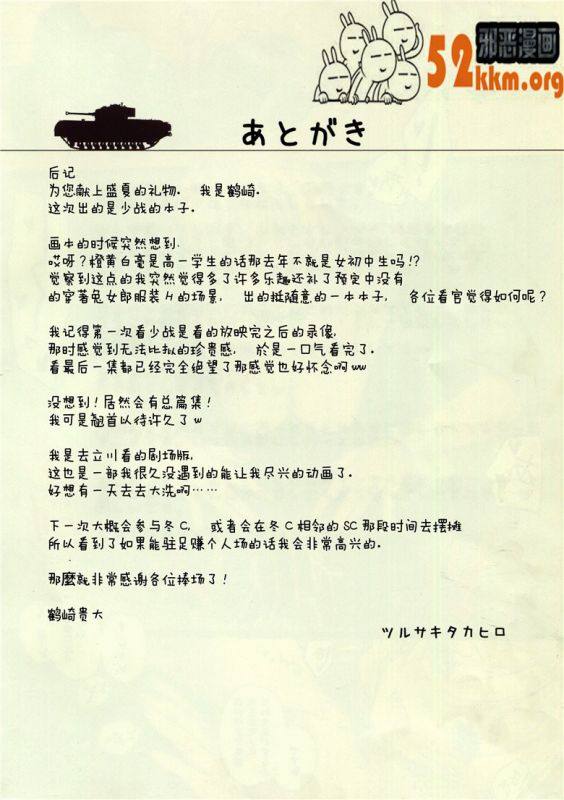 邪恶漫画
52kkm.org
あとがき
后记
为您献上盛夏的礼物. 我是鹤崎.
这次出的是少战的本子.
画本的时候突然想到.
哎呀?橙黄白毫是高一学生的话那去年不就是女初中生吗!?
觉察到这点的我突然觉得多了许多乐趣还补了预定中没有
的穿著兔女郎服装H的场景, 出的挺随意的一本本子, 各位看官觉得如何呢?
我记得第一次看少战是看的放映完之后的录像,
那时感觉到无法比拟的珍贵感, 於是一口气看完了.
看最后一集都已经完全绝望了那感觉也好怀念啊ww
没想到!居然会有总篇集!
我可是翘首以待许久了w
我是去立川看的剧场版,
这也是一部我很久没遇到的能让我尽兴的动画了.
好想有一天去去大洗啊……
下一次大概会参与冬C, 或者会在冬C相邻的SC那段时间去摆摊
所以看到了如果能驻足赚个人场的话我会非常高兴的.
那麼就非常感谢各位捧场了!
鹤崎贵大
ツルサキタカヒロ